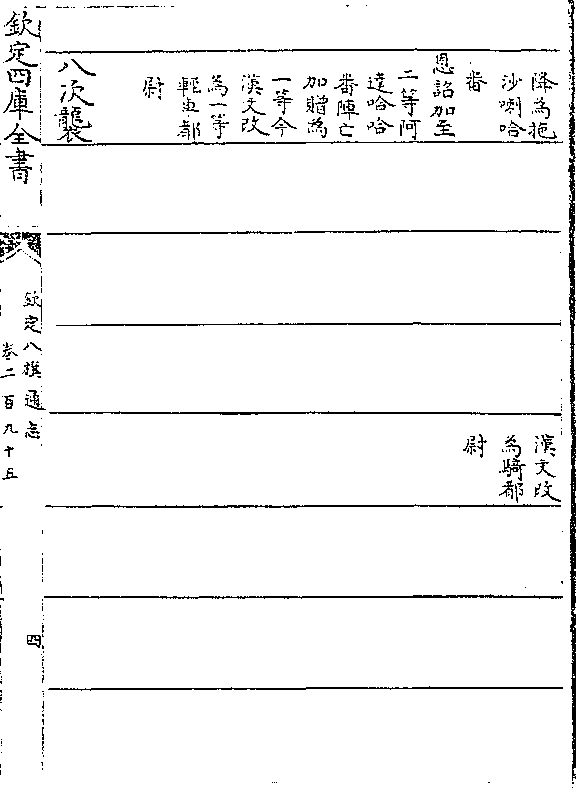 降為拖
沙喇哈
番
恩詔加至
二等阿
達哈哈
番陣亡
加贈為
一等今
漢文改
為一等
輕車都
尉
漢文改
為騎都
尉
八次襲
欽定四庫全書
欽定八旗通志
卷二百九十五
四